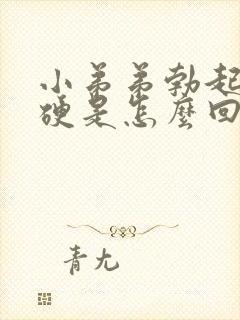 小弟弟勃起
硬是怎麼回
青尢